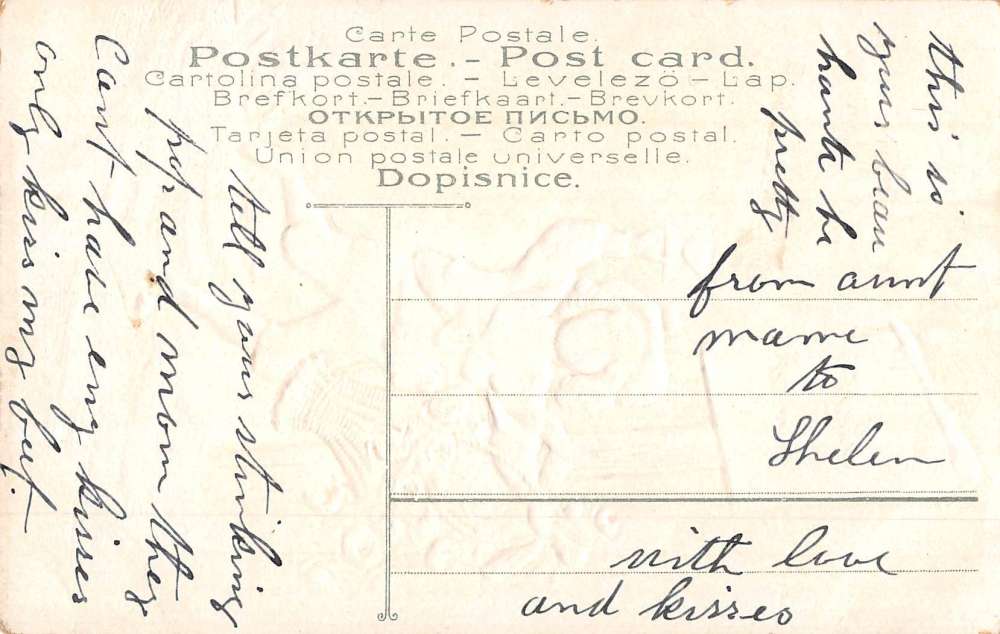 Carte Postale.
Postkarte. - Post card.
Cartolina postale. - Levelezö - Lap.
Brefkort. - Briefkaart. - Brevkort.
ОТКРЫТОЕ ПИСЬМО.
Tarjeta postal. - Carto postal.
Union postale universelle.
Dopisnice.
this is
your beau
hante he
pretty
from aunt
mame
to
Shelen
with love
and kisses
tell your stinking
pop and mom they
Cant have eny kisses
only kiss my but.